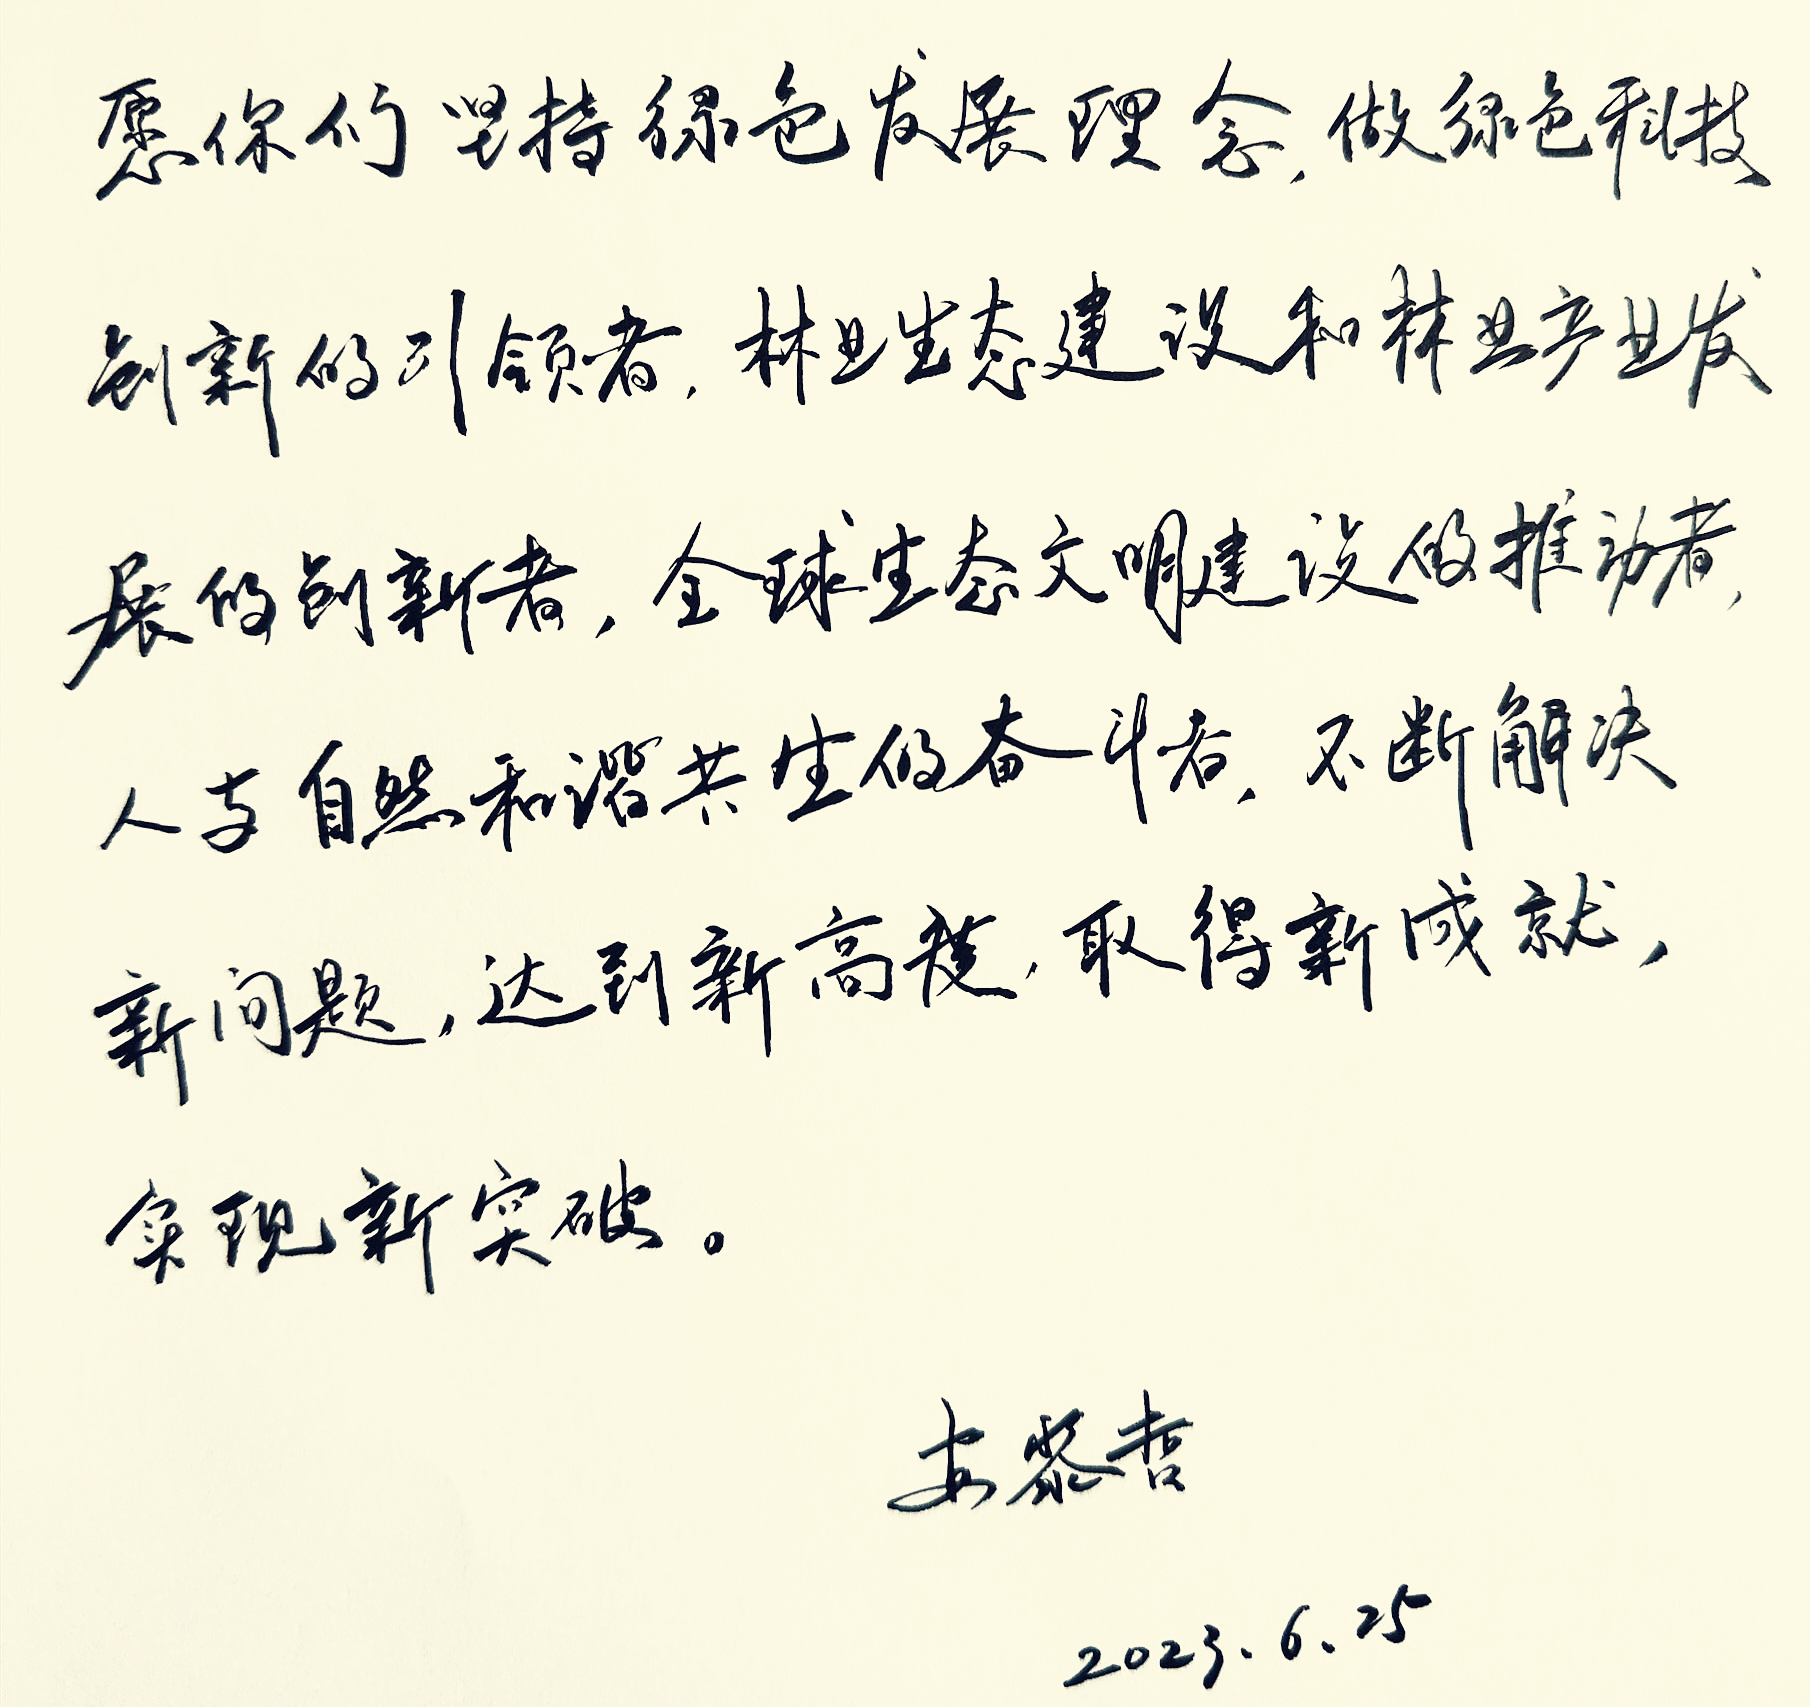 愿你们坚持绿色发展理念,做绿色科技
创新的引领者,林业生态建设和林业产业发
展的创新者,全球生态文明建设的推动者,
人与自然和谐共生的奋斗者,不断解决
新问题,达到新高度,取得新成就,
实现新突破。
安黎哲
2023.6.25